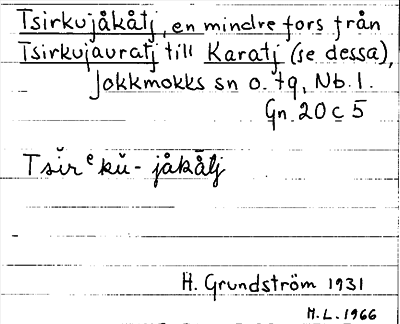 Tsirkujåkåtj, en mindre fors från
Tsirkujauratj till Karatj (se dessa),
Jokkmokks sn o. tg, Nb. l.
Gn. 20 c 5
Tsĭrᵉkŭ- jåkåtj
H. Grundström 1931
H.L. 1966